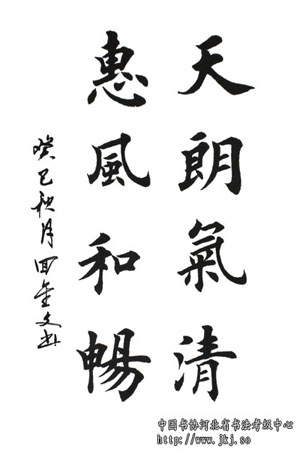 天朗氣清
惠風和暢
癸巳秋月回金文书
中国书协河北省书法考级中心
http://www.jkj.so